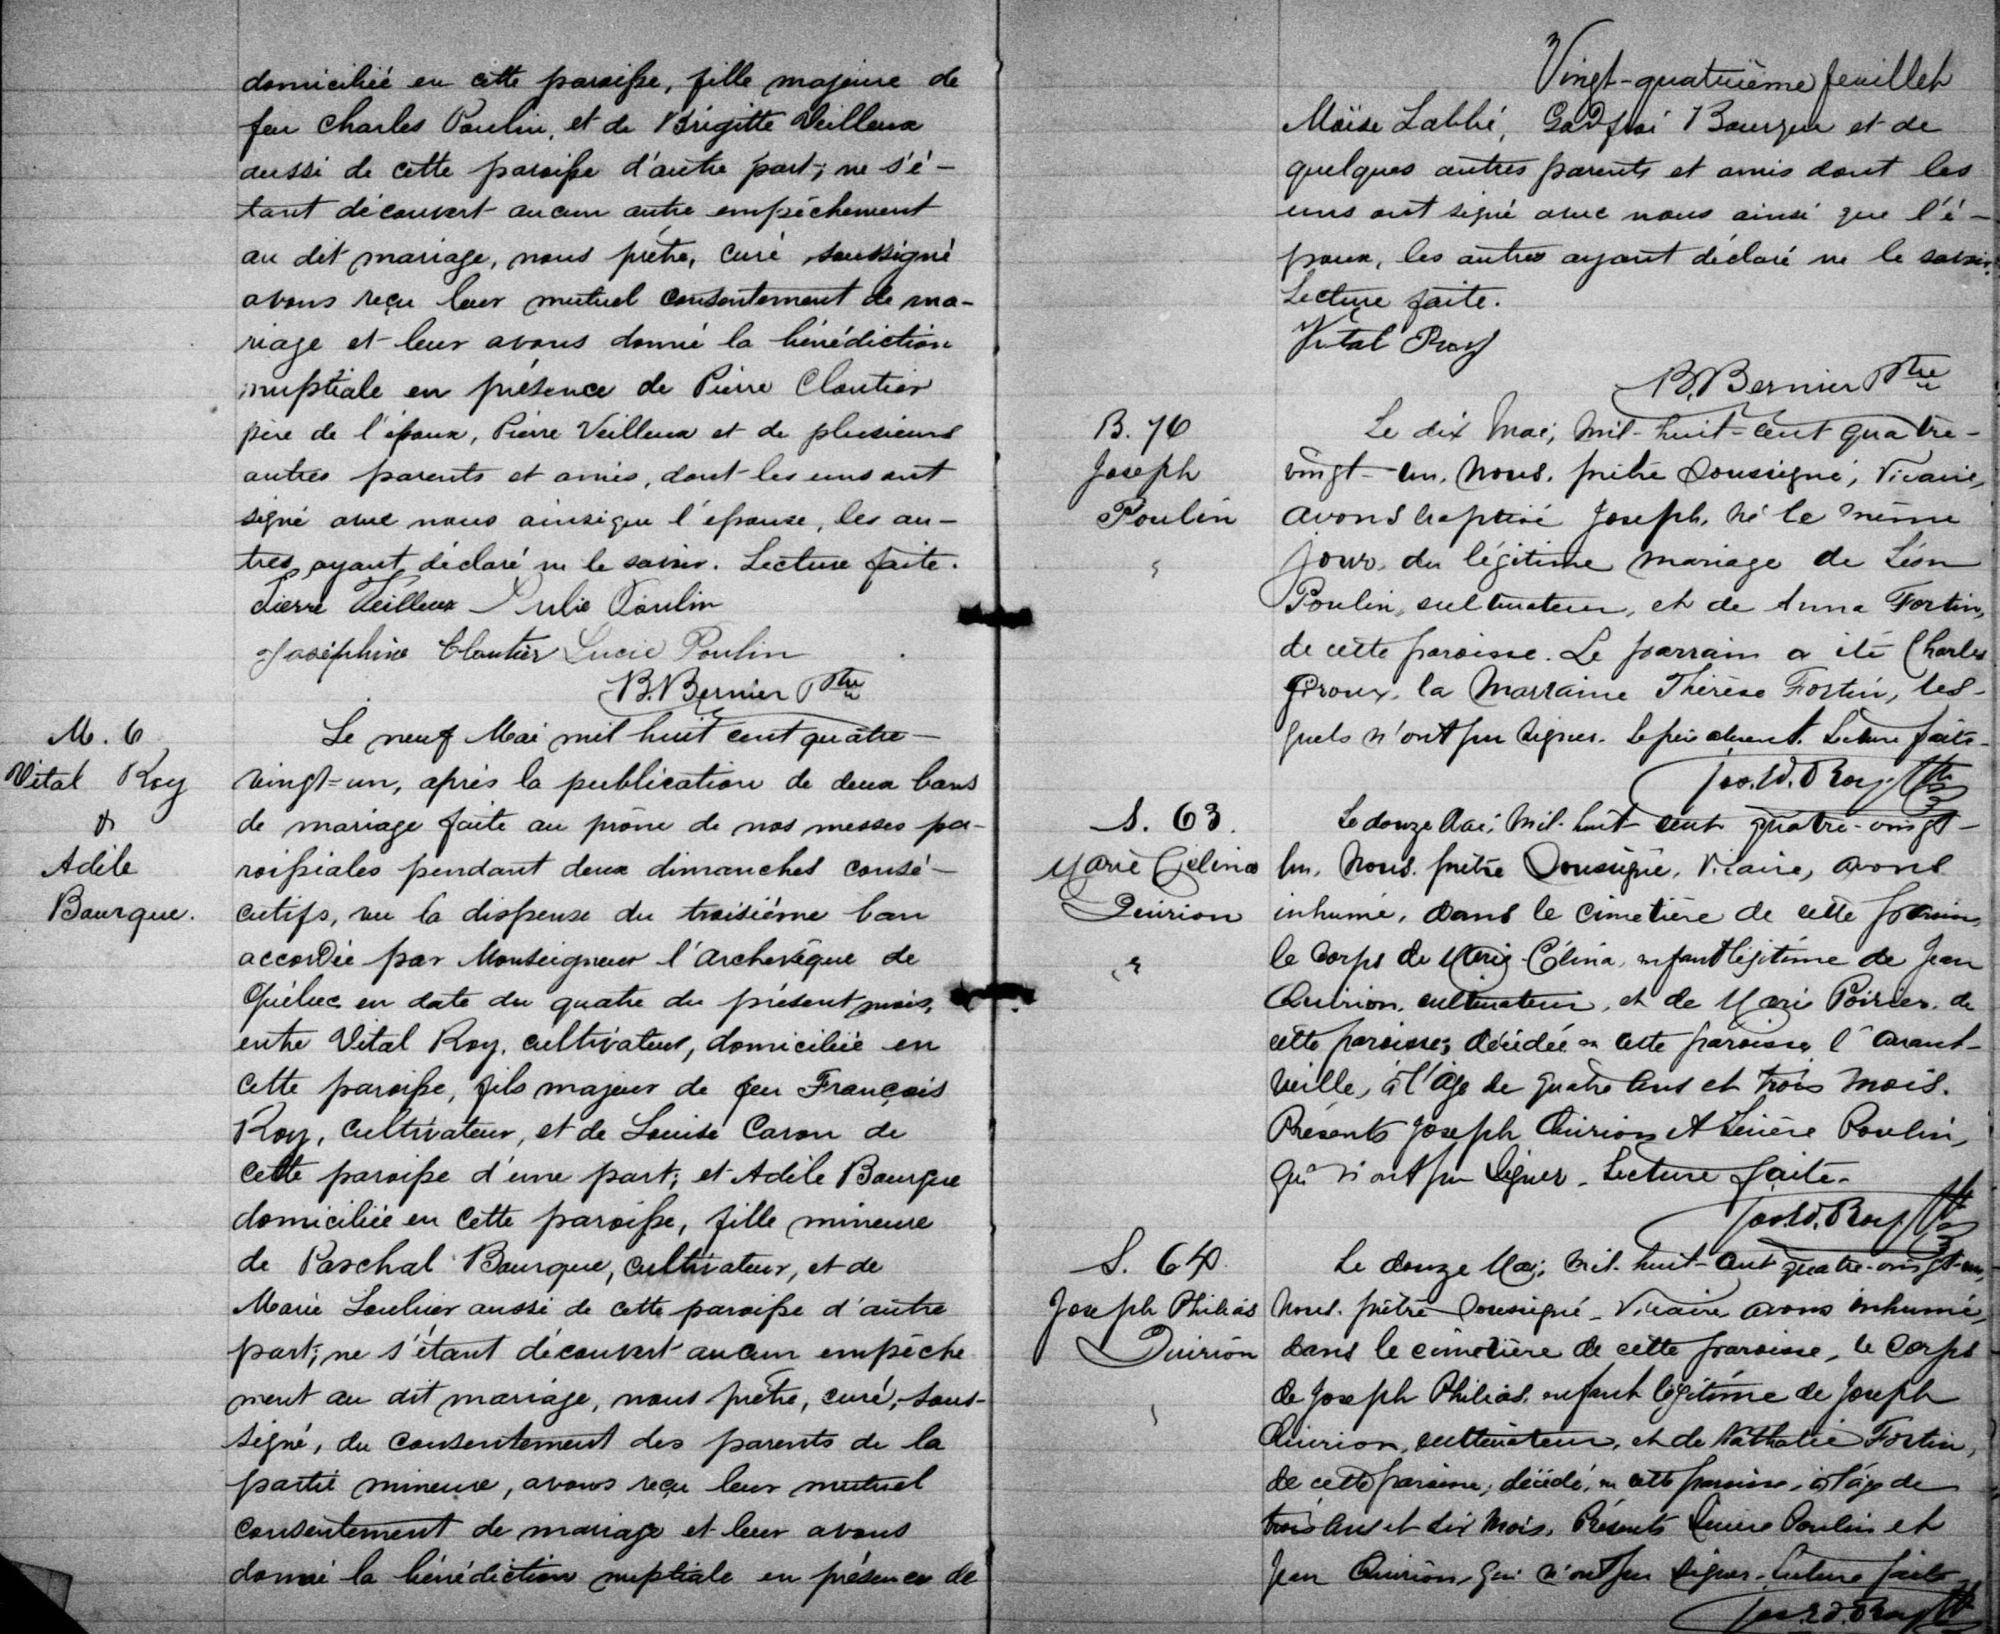 domiciliée en cette paroisse, fille majeure de
feu Charles Poulin, et de Brigitte Veilleux
aussi de cette paroisse d'autre part; ne s'é-
tant découvert aucun autre empêchement
au dit mariage, nous prêtre, curé soussigné
avons reçu leur mutuel consentement de ma-
riage et leur avons donné la bénédiction
nuptiale en présence de Pierre Cloutier
père de l'époux, Pierre Veilleux et de plusieurs
autres parents et amis, dont les uns ont
signé avec nous ainsi que l'épouse, les au-
tres ayant déclaré ne le savoir. Lecture faite.
Pierre Veilleux Julie Poulin
Joséphine Cloutier Lucie Poulin
B. Bernier Ptre
M. 6
Vital Roy
&
Adèle
Bourque.
Le neuf Mai mil huit cent quatre-
vingt-un, après la publication de deux bans
de mariage faite au prône de nos messes pa-
roissiales pendant deux dimanches consé-
cutifs, vu la dispense du troisième ban
accordée par Monseigneur l'Archevêque de
Québec en date du quatre du présent mois,
entre Vital Roy, cultivateur, domicilié en
cette paroisse, fils majeur de feu François
Roy, cultivateur, et de Louise Caron de
cette paroisse d'une part; et Adèle Bourque
domiciliée en cette paroisse, fille mineure
de Paschal Bourque, cultivateur, et de
Marie Loubier aussi de cette paroisse d'autre
part; ne s'étant découvert aucun empêche
ment au dit mariage, nous prêtre, curé, sous-
signé, du consentement des parents de la
partie mineure, avons reçu leur mutuel
consentement de mariage et leur avons
donné la bénédiction nuptiale en présence de
Vingt-quatrième feuillet
Moïse Labbé, Godfroi Bourque et de
quelques autres parents et amis dont les
uns ont signé avec nous ainsi que l'é-
poux, les autres ayant déclaré ne le savoir.
Lecture faite.
Vital Roy
B. Bernier Ptre
B. 76
Joseph
Poulin
Le dix Mai, mil-huit-cent quatre-
vingt-un, Nous, prêtre soussigné, Vicaire,
avons baptisé Joseph, né le même
jour, du légitime mariage de Léon
Poulin, cultivateur, et de Anna Fortin,
de cette paroisse. Le parrain a été Charles
Giroux, la marraine Thérèse Fortin, les-
quels n'ont pu signer. Le père absent. Lecture faite.
Jos. W. Roy, Ptre
S. 63.
Marie Célina
Quirion
Le douze Mai, Mil-huit cent quatre-vingt-
un, Nous, prêtre soussigné, Vicaire, avons
inhumé, dans le cimetière de cette paroisse,
le corps de Marie Célina, enfant légitime de Jean
Quirion, cultivateur, et de Marie Poirier, de
cette paroisse; décédée en cette paroisse l'avant-
veille, à l'âge de quatre ans et trois mois.
Présents Joseph Quirion et Lévière Poulin,
qui n'ont pu signer. Lecture faite.
Jos. W. Roy, Ptre
S. 64.
Joseph Philias
Quirion
Le douze Mai, mil-huit-cent quatre-vingt-un,
Nous, prêtre soussigné, Vicaire avons inhumé,
dans le cimetière de cette paroisse, le corps
de Joseph Philias, enfant légitime de Joseph
Quirion, cultivateur, et de Nathalie Fortin,
de cette paroisse; décédé, en cette paroisse, à l'âge de
trois ans et dix mois. Présents Poulin et
Jean Quirion, qui n'ont pu signer. Lecture faite
Jos. W. Roy Ptre